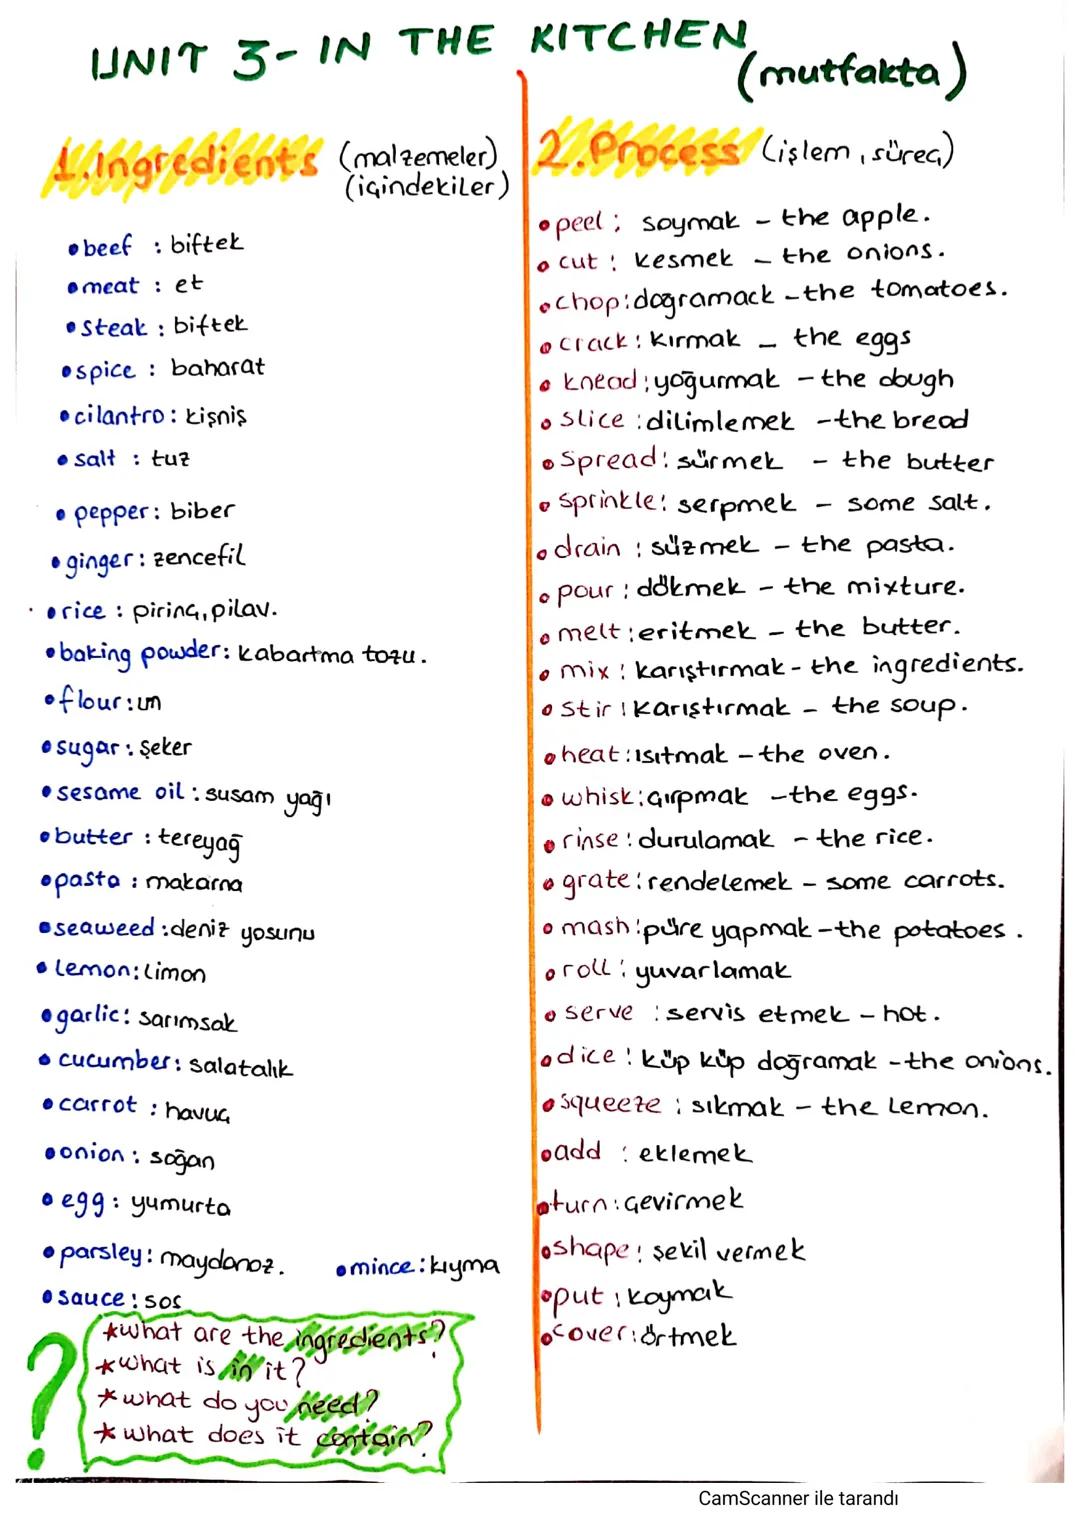 UNIT 3- IN THE KITCHEN
(mutfakta)
1.Ingredients (malzemeler)
(içindekiler)
• beef : biftek
• meat : et
• steak : biftek
• spice : baharat
• cilantro : kişniş
• salt : tuz
• pepper : biber
• ginger : zencefil
• rice : pirinç, pilav.
• baking powder : kabartma tozu.
• flour : un
• sugar : şeker
• sesame oil : susam yağı
• butter : tereyağ
• pasta : makarna
• seaweed : deniz yosunu
• lemon : limon
• garlic : sarımsak
• cucumber : salatalık
• carrot : havuç
• onion : soğan
• egg : yumurta
• parsley : maydanoz. • mince : kıyma
• sauce : sos
? *what are the ingredients?
*what is in it?
*what do you need?
*what does it contain?
2.Process (işlem, süreç)
• peel : soymak - the apple.
• cut : kesmek - the onions.
• chop : dogramack - the tomatoes.
• crack : kırmak - the eggs
• knead : yoğurmak - the dough
• slice : dilimlemek - the bread
• spread : sürmek - the butter
• sprinkle : serpmek - some salt.
• drain : süzmek - the pasta.
• pour : dökmek - the mixture.
• melt : eritmek - the butter.
• mix : karıştırmak - the ingredients.
• stir : karıştırmak - the soup.
• heat : ısıtmak - the oven.
• whisk : çırpmak - the eggs.
• rinse : durulamak - the rice.
• grate : rendelemek - some carrots.
• mash : püre yapmak - the potatoes.
• roll : yuvarlamak
• serve : servis etmek - hot.
• dice : küp küp doğramak - the onions.
• squeeze : sıkmak - the lemon.
• add : eklemek
• turn : çevirmek
• shape : şekil vermek
• put : koymak
• cover : örtmek
CamScanner ile tarandı